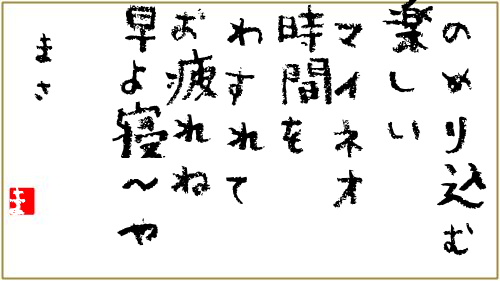 のめり込む
楽しい
マイネオ
時間を
わすれて
お疲れね
早よ寝〜や
まさ
ま